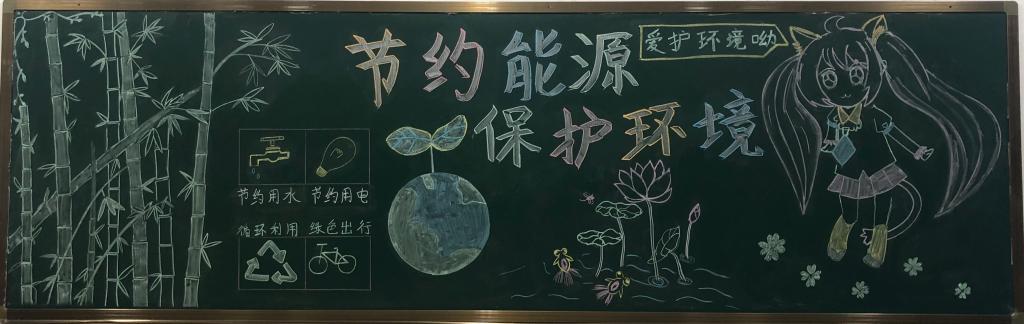 节约能源
爱护环境呦
保护环境
节约用水 节约用电
循环利用 绿色出行